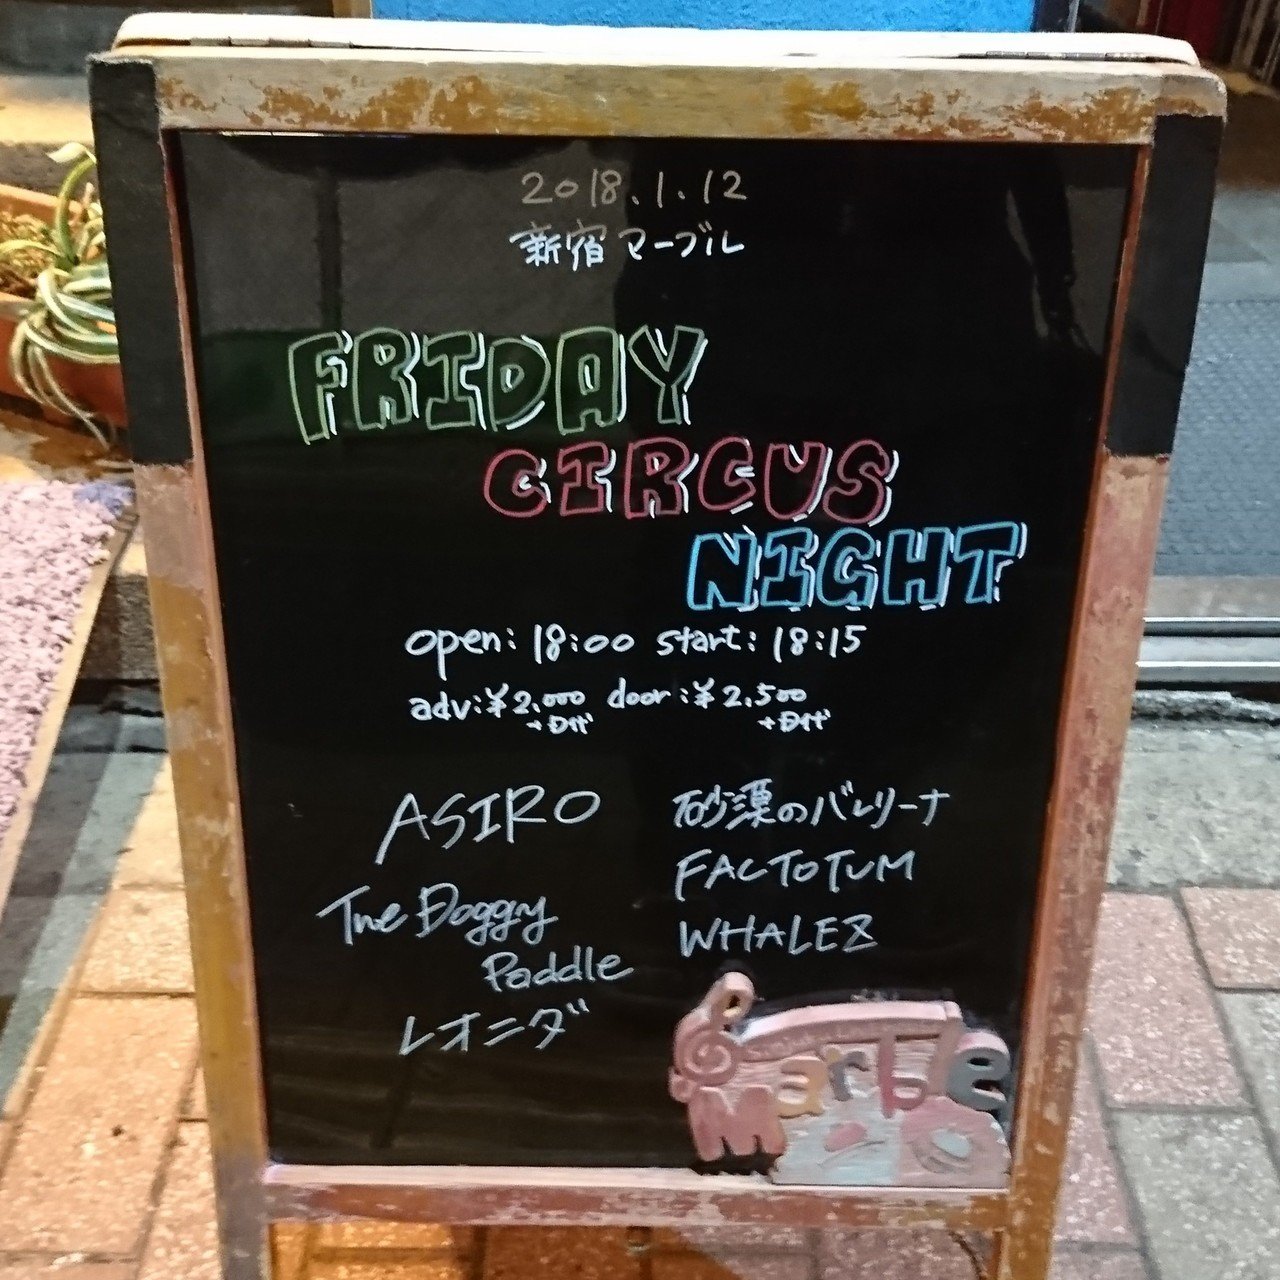 2018.1.12
新宿マーブル
FRIDAY
CIRCUS
NIGHT
open: 18:00 start: 18:15
adv:¥2,000 door:¥2,500
+D代 +D代
ASIRO
The Doggy
Paddle
レオニダ
砂漠のバレリーナ
FACTOTUM
WHALEZ
Marble